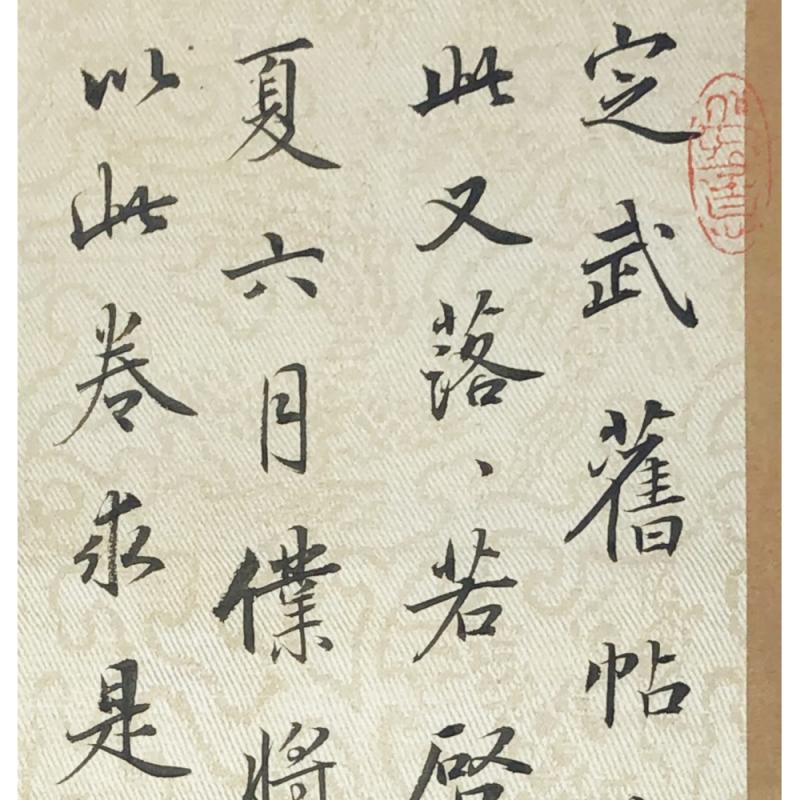 定武舊帖
此又落、若啓
夏六月僕將
以此卷求是